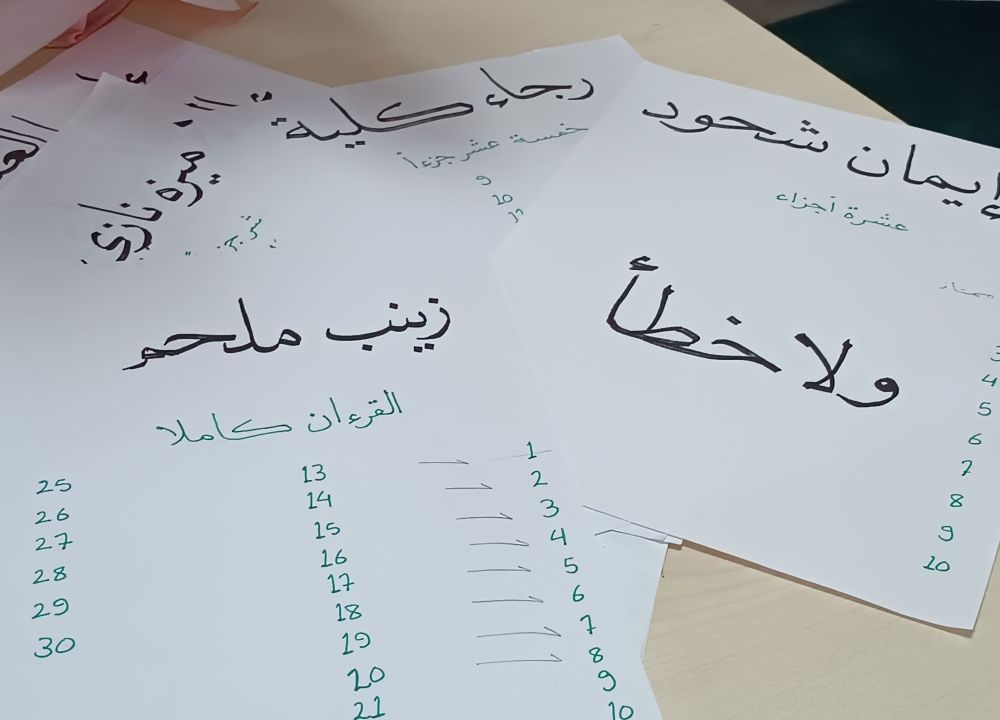 إيمان شحود
عشرة أجزاء
ممتاز
ولا خطأ
3
4
5
6
7
8
9
10
رجاء كلية
خمسة عشر جزءاً
9
10
11
زينب ملحم
القرءان كاملا
1 13 25
2 14 26
3 15 27
4 16 28
5 17 29
6 18 30
7 19
8 20
9 21
10